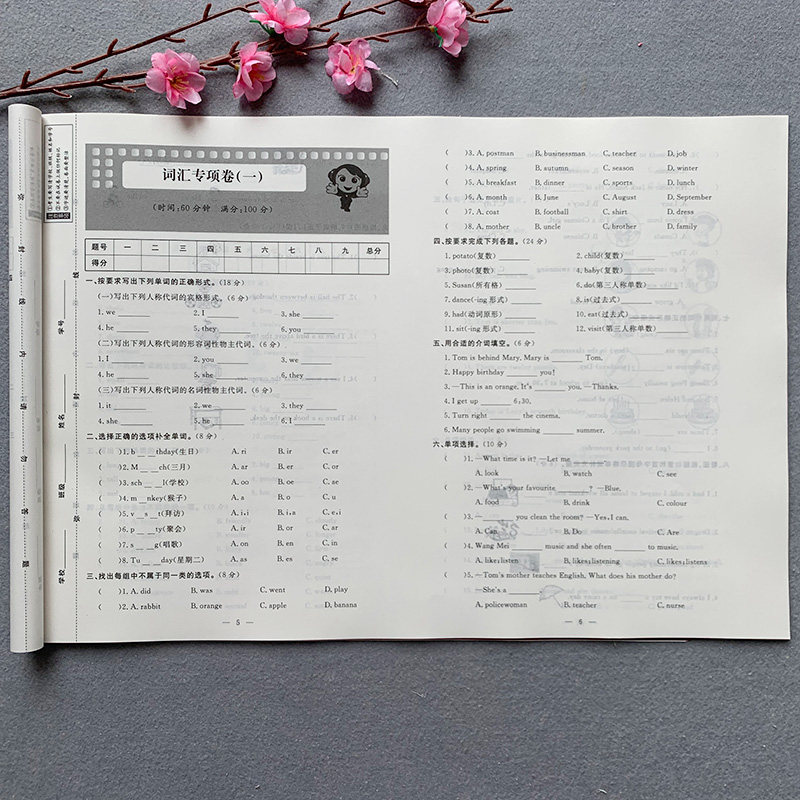 词汇专项卷(一)
(时间:60分钟 满分:100分)
题号 一 二 三 四 五 六 七 八 九 总分
得分
一、按要求写出下列单词的正确形式。(18分)
(一)写出下列人称代词的宾格形式。(6分)
1. we ______ 2. I ______ 3. she ______
4. he ______ 5. they ______ 6. you ______
(二)写出下列人称代词的形容词性物主代词。(6分)
1. I ______ 2. you ______ 3. we ______
4. he ______ 5. she ______ 6. they ______
(三)写出下列人称代词的名词性物主代词。(6分)
1. it ______ 2. we ______ 3. they ______
4. she ______ 5. he ______ 6. I ______
二、选择正确的选项补全单词。(8分)
( )1. b __ __thday(生日) A. ri B. ir C. er
( )2. M __ __ch(三月) A. ar B. er C. or
( )3. sch __ __l(学校) A. oo B. oe C. ae
( )4. m __nkey(猴子) A. a B. o C. u
( )5. v __s __t(拜访) A. i,i B. i,a C. a,i
( )6. p __ __ty(聚会) A. ir B. or C. ar
( )7. s __ __g(唱歌) A. on B. en C. in
( )8. Tu __ __day(星期二) A. as B. es C. se
三、找出每组中不属于同一类的选项。(8分)
( )1. A. did B. was C. went D. play
( )2. A. rabbit B. orange C. apple D. banana
— 5 —
( )3. A. postman B. businessman C. teacher D. job
( )4. A. spring B. autumn C. season D. winter
( )5. A. breakfast B. dinner C. sports D. lunch
( )6. A. month B. June C. August D. September
( )7. A. coat B. football C. shirt D. dress
( )8. A. mother B. uncle C. brother D. family
四、按要求完成下列各题。(24分)
1. potato(复数) ______ 2. child(复数) ______
3. photo(复数) ______ 4. baby(复数) ______
5. Susan(所有格) ______ 6. do(第三人称单数) ______
7. dance(-ing 形式) ______ 8. is(过去式) ______
9. had(动词原形) ______ 10. eat(过去式) ______
11. sit(-ing 形式) ______ 12. visit(第三人称单数) ______
五、用合适的介词填空。(6分)
1. Tom is behind Mary. Mary is ______ Tom.
2. Happy birthday ______ you!
3. —This is an orange. It's ______ you. —Thanks.
4. I get up ______ 6:30.
5. Turn right ______ the cinema.
6. Many people go swimming ______ summer.
六、单项选择。(10分)
( )1. —What time is it? —Let me ______
A. look B. watch C. see
( )2. —What's your favourite ______? —Blue.
A. food B. drink C. colour
( )3. —______ you clean the room? —Yes, I can.
A. Can B. Do C. Are
( )4. Wang Mei ______ music and she often ______ to music.
A. like; listen B. likes; listening C. likes; listens
( )5. —Tom's mother teaches English. What does his mother do?
—She's a ______.
A. policewoman B. teacher C. nurse
— 6 —
学校
班级
姓名
学号
弥
封
线
内
请
勿
答
题
弥
封
线